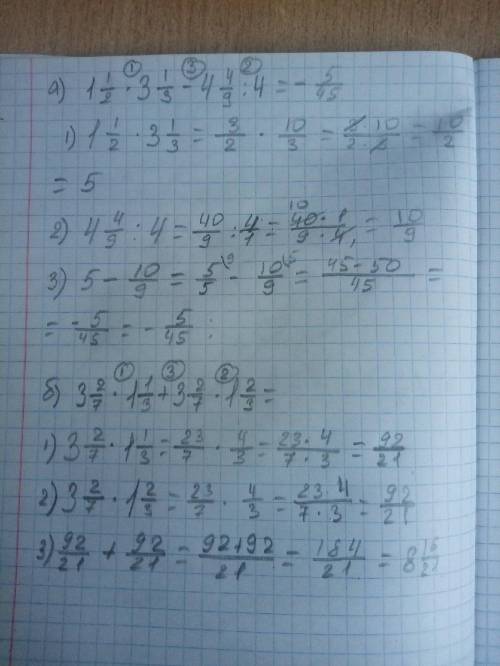 а) 1 1/2 · 3 1/3 - 4 4/9 : 4 = - 5/45
① ③ ②
1) 1 1/2 · 3 1/3 = 3/2 · 10/3 = 3·10/2·3 = 10/2
= 5
2) 4 4/9 : 4 = 40/9 : 4/1 = 40·1/9·4 = 10/9
3) 5 - 10/9 = 5/5 - 10/9 = 45-50/45 =
= -5/45 = - 5/45 :
б) 3 2/7 · 1 1/3 + 3 2/7 · 1 2/3 =
① ③ ②
1) 3 2/7 · 1 1/3 = 23/7 · 4/3 = 23·4/7·3 = 92/21
2) 3 2/7 · 1 2/3 = 23/7 · 4/3 = 23·4/7·3 = 92/21
3) 92/21 + 92/21 = 92+92/21 = 184/21 = 8 16/21